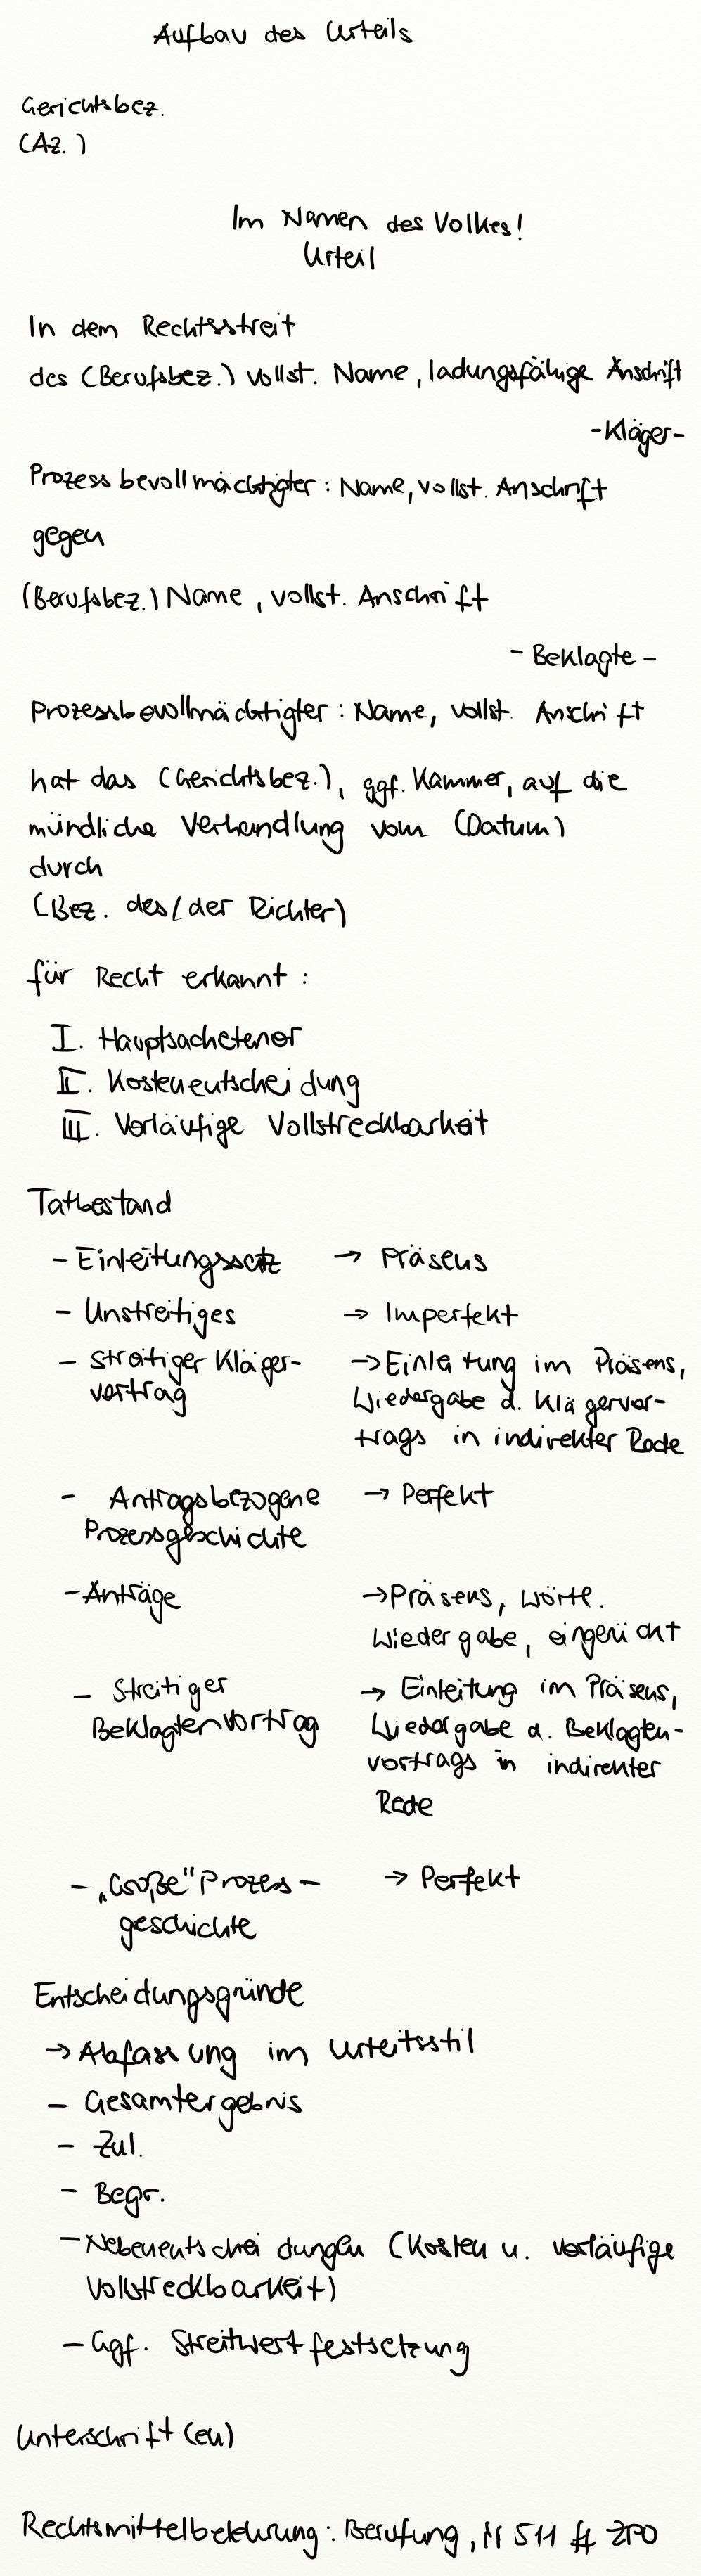 Aufbau des Urteils
Gerichtsbez.
(Az.)
Im Namen des Volkes!
Urteil
In dem Rechtsstreit
des (Berufsbez.) vollst. Name, ladungsfähige Anschrift
-Kläger-
Prozessbevollmächtigter: Name, vollst. Anschrift
gegen
(Berufsbez.) Name, vollst. Anschrift
- Beklagte -
Prozessbevollmächtigter: Name, vollst. Anschrift
hat das (Gerichtsbez.), ggf. Kammer, auf die
mündliche Verhandlung vom (Datum)
durch
(Bez. des/der Richter)
für Recht erkannt:
I. Hauptsachetenor
II. Kostenentscheidung
III. Vorläufige Vollstreckbarkeit
Tatbestand
- Einleitungssatz → Präsens
- Unstreitiges → Imperfekt
- Streitiger Kläger- → Einleitung im Präsens,
vortrag Wiedergabe d. Klägervor-
trags in indirekter Rede
- Antragsbezogene → Perfekt
Prozessgeschichte
- Anträge → Präsens, wörtl.
Wiedergabe, eingerückt
- Streitiger → Einleitung im Präsens,
Beklagtenvortrag Wiedergabe d. Beklagten-
vortrags in indirekter
Rede
- „Große" Prozess- → Perfekt
geschichte
Entscheidungsgründe
→ Abfassung im Urteilsstil
- Gesamtergebnis
- Zul.
- Begr.
- Nebenentscheidungen (Kosten u. vorläufige
Vollstreckbarkeit)
- Ggf. Streitwertfestsetzung
Unterschrift(en)
Rechtsmittelbelehrung: Berufung, §§ 511 ff. ZPO